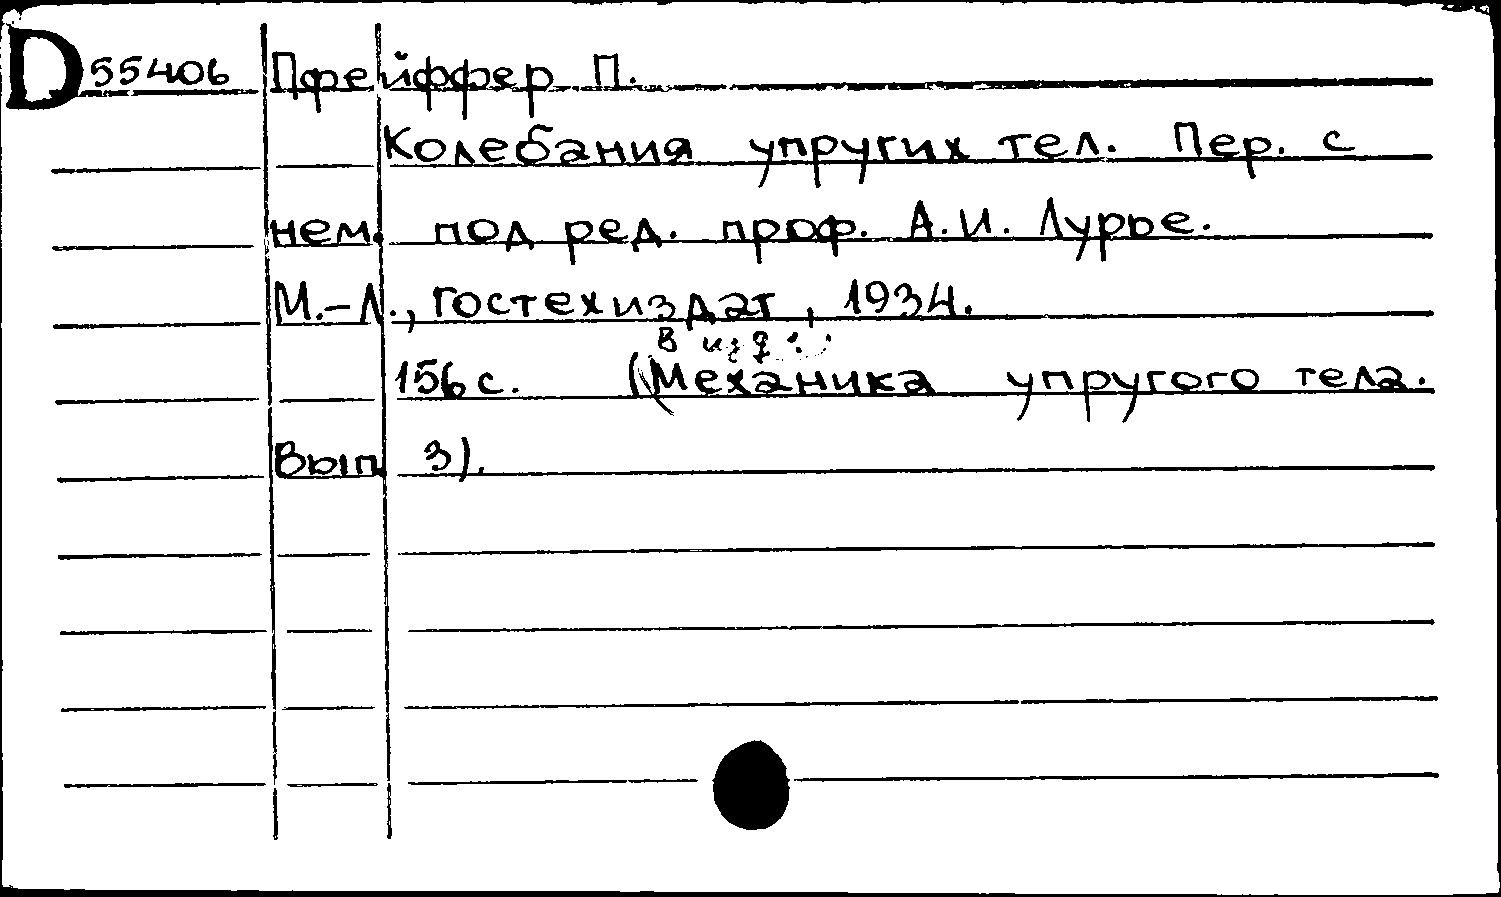 D 55406 Пфейффер П.
Колебания упругих тел. Пер. с
нем. под ред. проф. А.И. Лурье.
М.-Л., гостехиздат, 1934.
в изд.:
156 с. (Механика упругого тела.
Вып. 3).